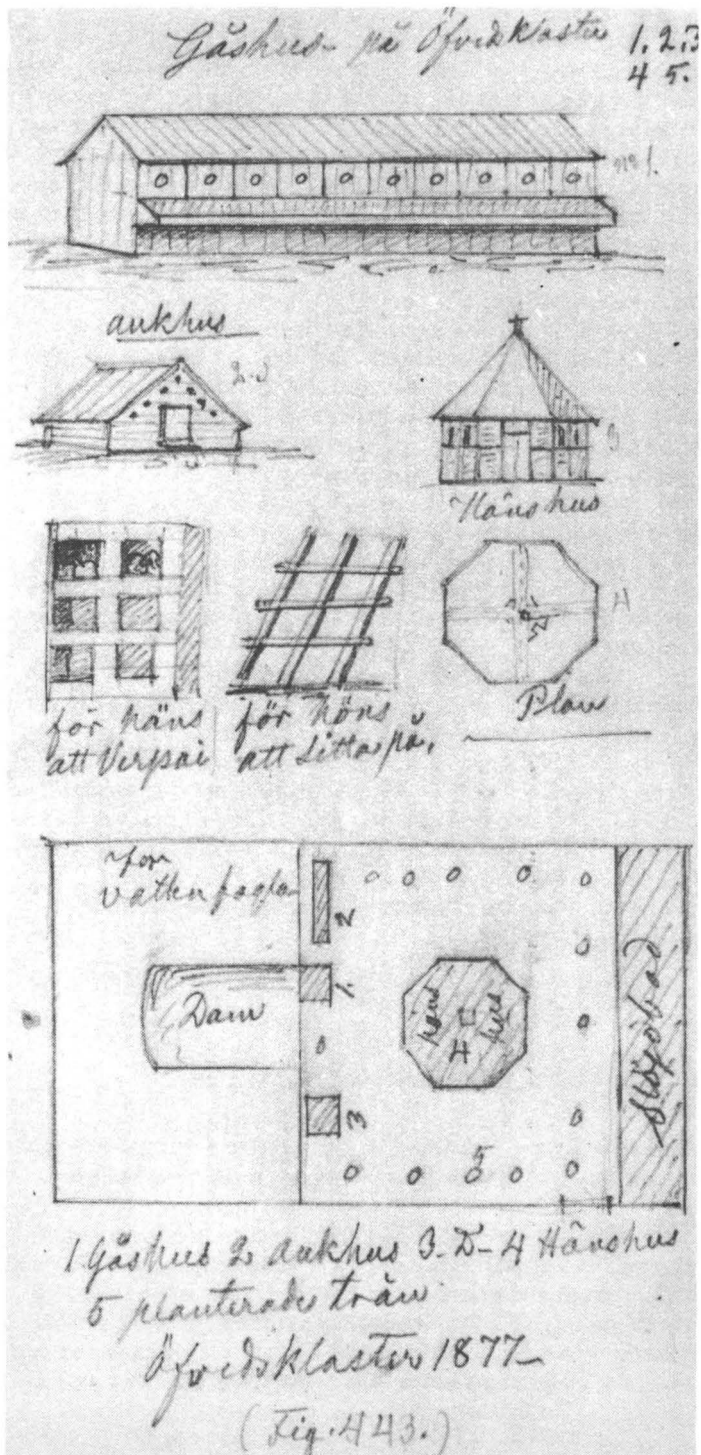 Gåshus på Öfvedskloster 1.2.3
4 5.
No 1.
aukhus
2.3
Hönshus
för höns
att Verpai
för höns
att Sitta på.
4
Plan
för
vatten foglar
2
Dam
1.
höns hus
4
3
5
1 Gåshus 2 aukhus 3. D- 4 Hönshus
5 planterade trän
Öfvedskloster 1877
(Fig. 443.)